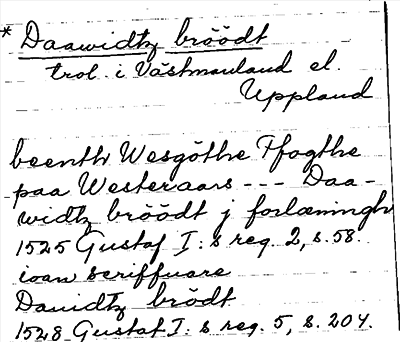 * Daawidtz bröödt
trol. i Västmanland el.
Uppland
beenth Wesgöthe Ffogthe
paa Westeraars --- Daa-
widtz bröödt j forlæningh
1525 Gustaf I:s reg. 2, s. 58.
ioan scriffuare
Dauidtz brödt
1528 Gustaf I:s reg. 5, s. 204.